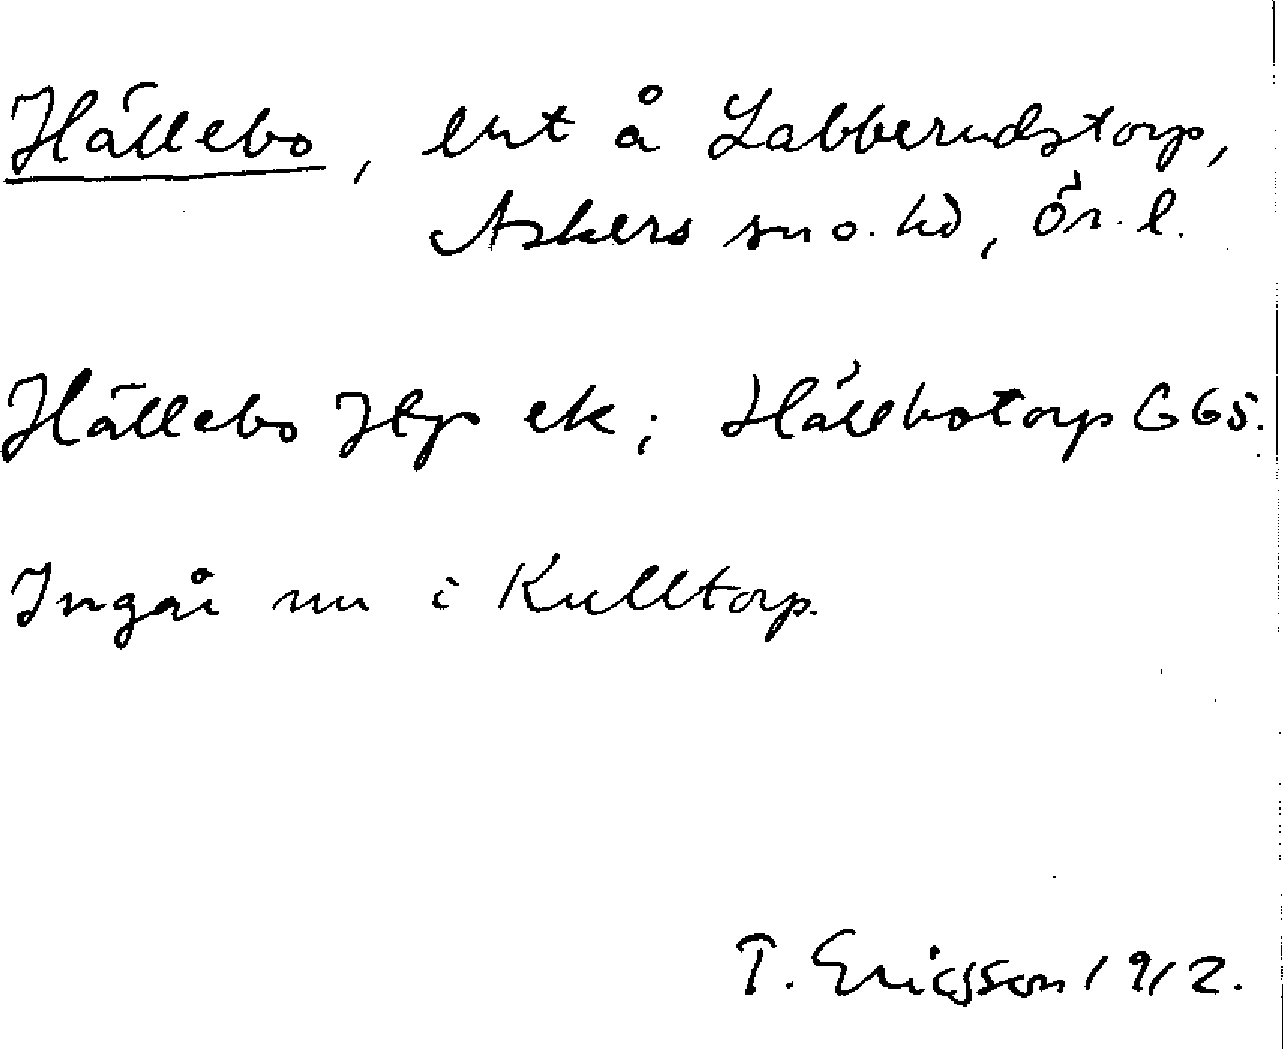 Hällebo, lht å Labberudstorp,
Askers sn o. hd, Ör. l.
Hällebo Jtp ek; Hällbotorp G65.
Ingår nu i Kulltorp.
T. Ericsson 1912.